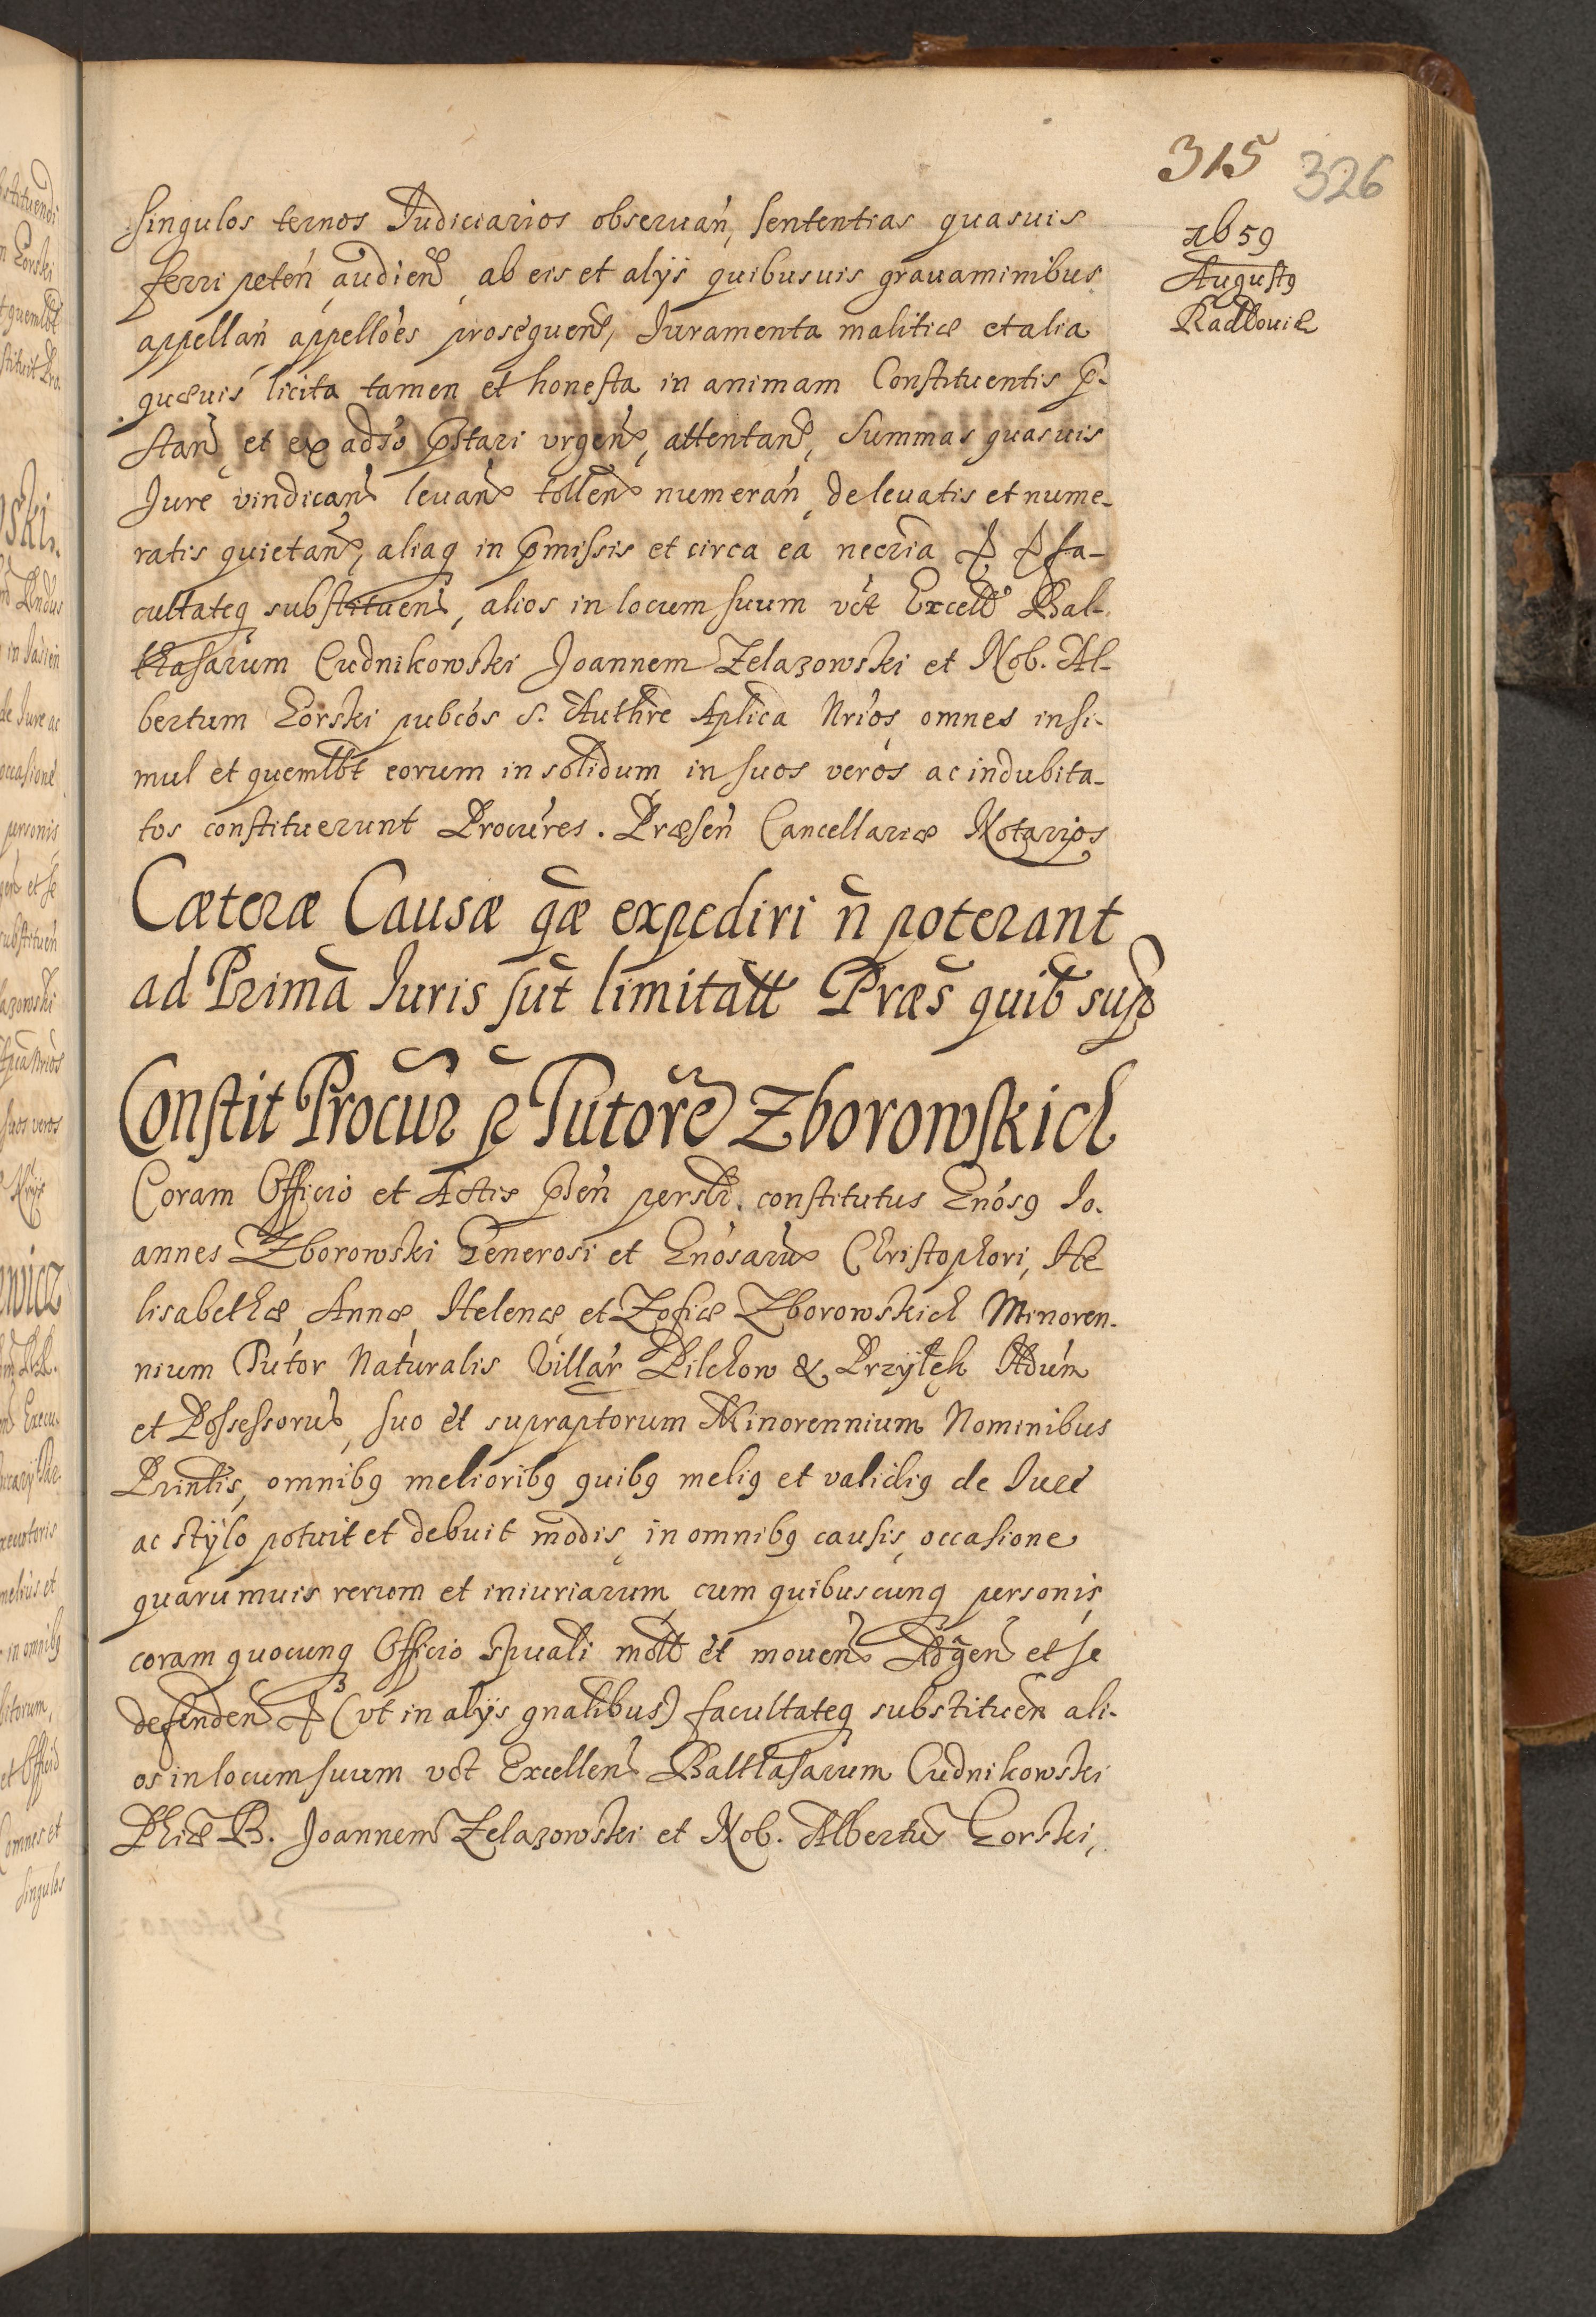 315 326
1659
Augusto
Radłowice
singulos ternos Iudiciarios obseruań, sententias quasuis
ferri peteń audień, ab eis et alijs quibusuis grauaminibus
appellań appellões prosequeń, Iuramenta malitiæ et alia
quæuis licita tamen et honesta in animam Constituentis p̃-
stań et ex adṽso p̃stari vrgeń, attentań, Summas quasuis
Jure vindicań leuań tolleń numerań, de leuatis et nume-
ratis quietań, aliaq in p̃missis et circa ea necr̃ia fa-
cultateq substitueń, alios in locum suum vct Excell Bal-
thasarum Cudnikowski Joannem Zelazowski et Nob. Al-
bertum Gorski pubcós S. Authre Aplica Nrios, omnes insi-
mul et quemlbt eorum in solidum in suos veros ac indubita-
tos constituerunt Procúres. Præseń Cancellariæ Notarios
Cæteræ Causæ q̃æ expediri ñ poterant
ad Primã Iuris sũt limitatt Præs quib sup
Constit Procur p Tutorẽ Zborowskich
Coram Officio et Actis p̃ñ perslr. constitutus Gnósq Jo-
annes Zborowski Generosi et Gnósarũ Christophori, He
lisabethæ, Annæ, Helenæ et Zofiæ Zborowskich Minoren-
nium Tutor Naturalis Villar Pilchow & Przyłęk Hdum
et Possessorum, suo et supraptorum Minorennium Nominibus
Printis, omnibq melioribq quibq meliq et validiq de Jure
ac stylo potuit et debuit modis, in omnibq causis, occasione
quarumuis rerum et iniuriarum, cum quibuscunq personis,
coram quocunq Officio Spuali mott et moueń Agẽń et se
defendeń (vt in alijs gnalibus) facultateq substitueń ali-
os in locum suum vct Excelleń Balthasarum Cudnikowski
Phiæ B. Joannem Zelazowski et Nob. Albertũ Gorski,